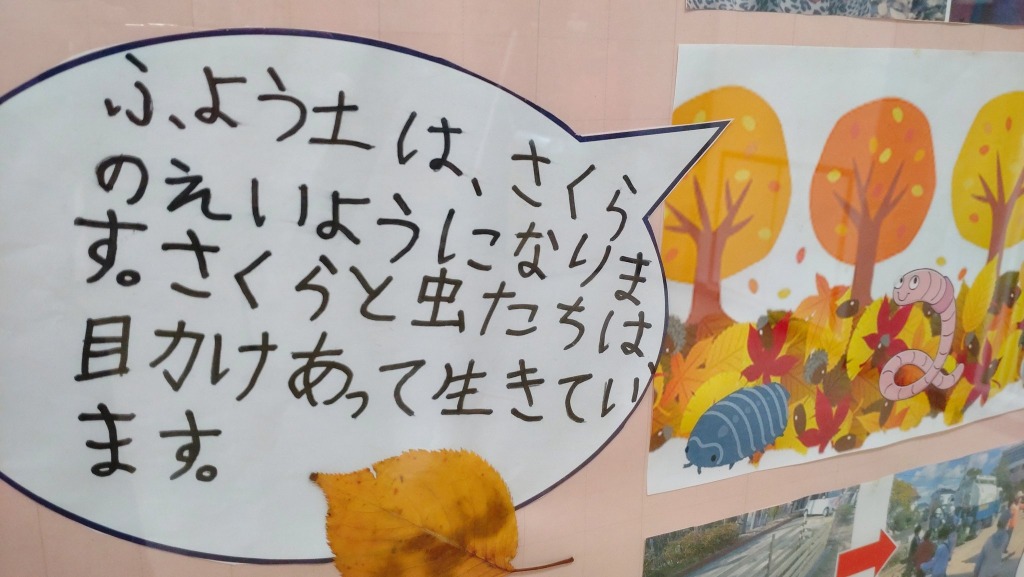 ふよう土は、さくら
のえいようになりま
す。さくらと虫たちは
助けあって生きてい
ます。